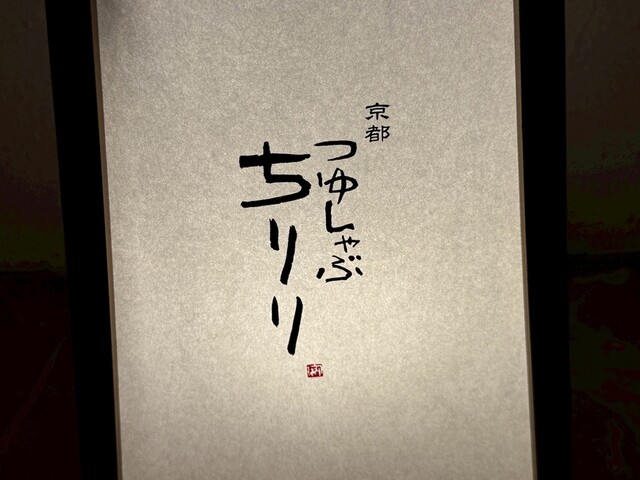 京都
つゆしゃぶ
ちりり